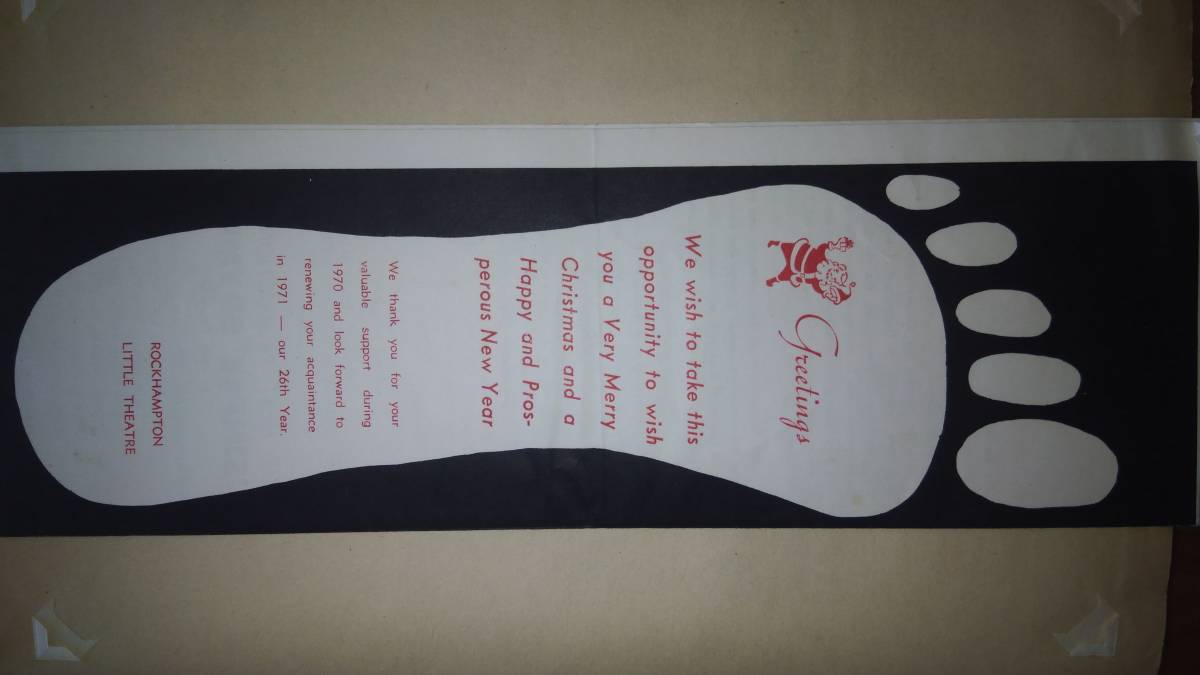 Greetings
We wish to take this
opportunity to wish
you a Very Merry
Christmas and a
Happy and Pros-
perous New Year
We thank you for your
valuable support during
1970 and look forward to
renewing your acquaintance
in 1971 — our 26th Year.
ROCKHAMPTON
LITTLE THEATRE